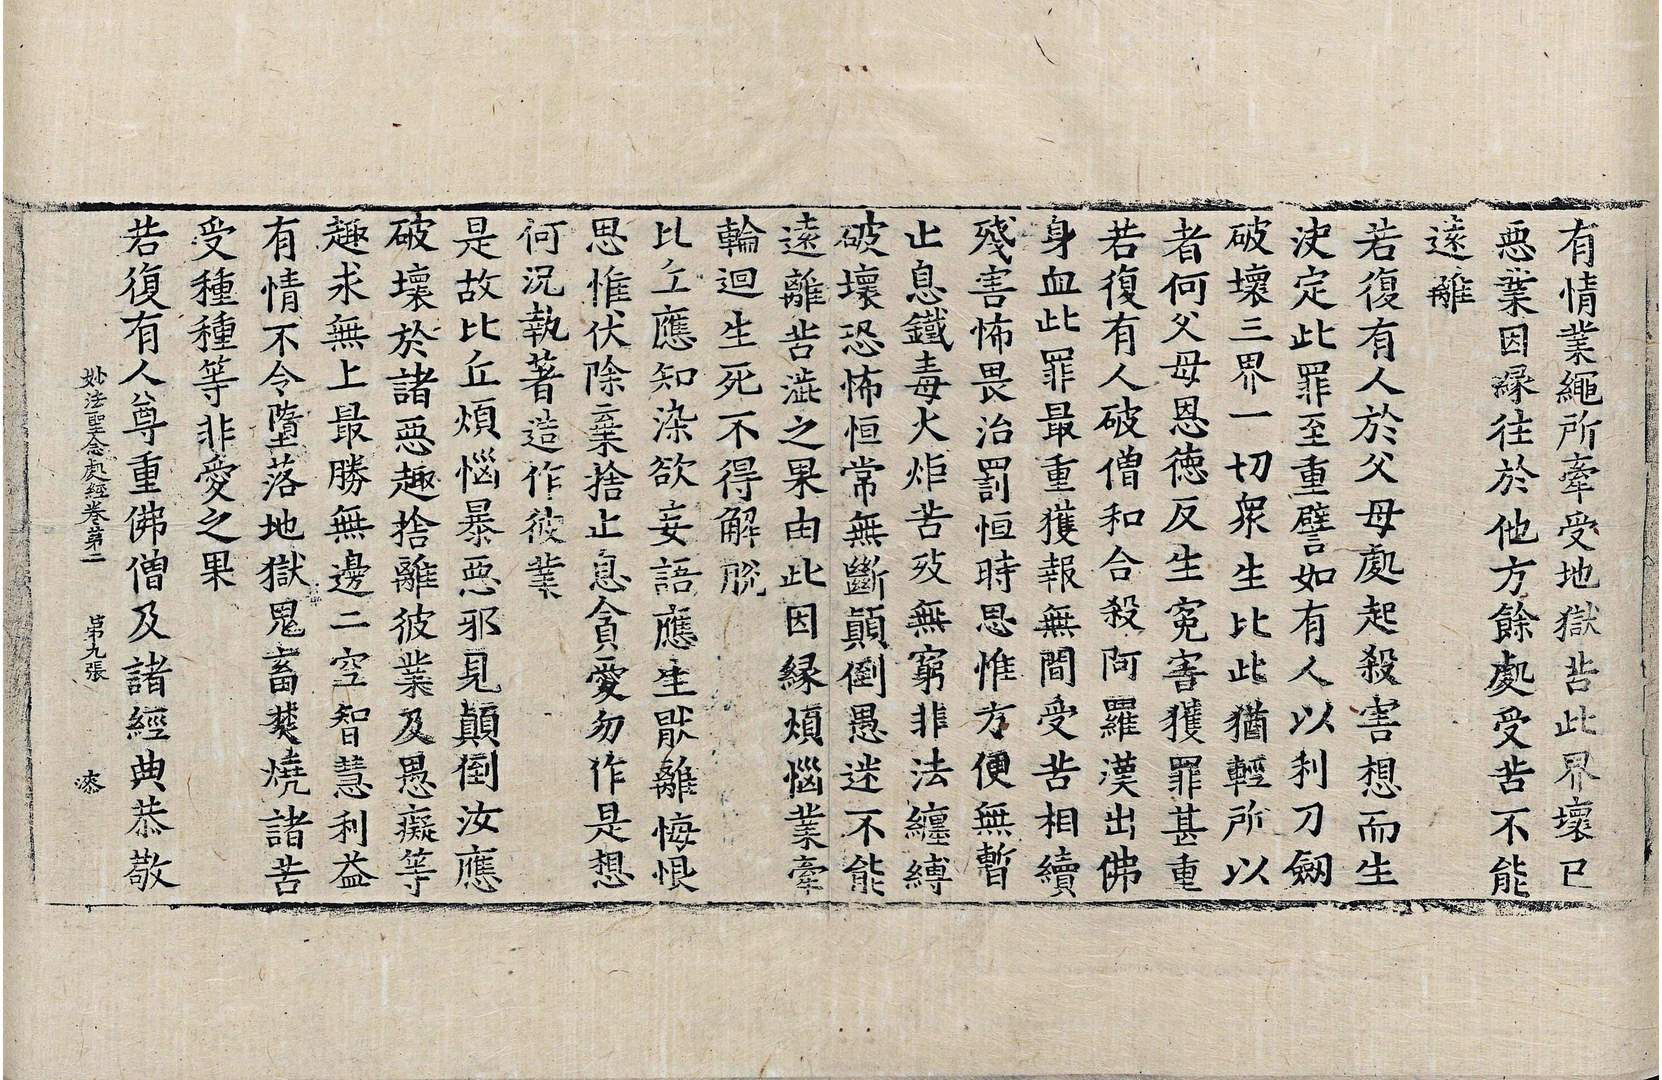 有情業繩所牽受地獄苦此界壞已
惡業因緣往於他方餘處受苦不能
遠離
若復有人於父母處起殺害想而生
決定此罪至重譬如有人以利刀劒
破壞三界一切衆生比此猶輕所以
者何父母恩德反生冤害獲罪甚重
若復有人破僧和合殺阿羅漢出佛
身血此罪最重獲報無間受苦相續
殘害怖畏治罰恒時思惟方便無暫
止息鐵毒火炬苦歿無窮非法纏縛
破壞恐怖恒常無斷顛倒愚迷不能
遠離苦澁之果由此因縁煩惱業牽
輪迴生死不得解脫
比丘應知染欲妄語應生猒離悔恨
思惟伏除棄捨止息貪愛勿作是想
何況執著造作彼業
是故比丘煩惱暴惡邪見顛倒汝應
破壞於諸惡趣捨離彼業及愚癡等
趣求無上最勝無邊二空智慧利益
有情不令墮落地獄鬼畜焚燒諸苦
受種種等非愛之果
若復有人尊重佛僧及諸經典恭敬
妙法聖念處經卷第二 第九張 漆